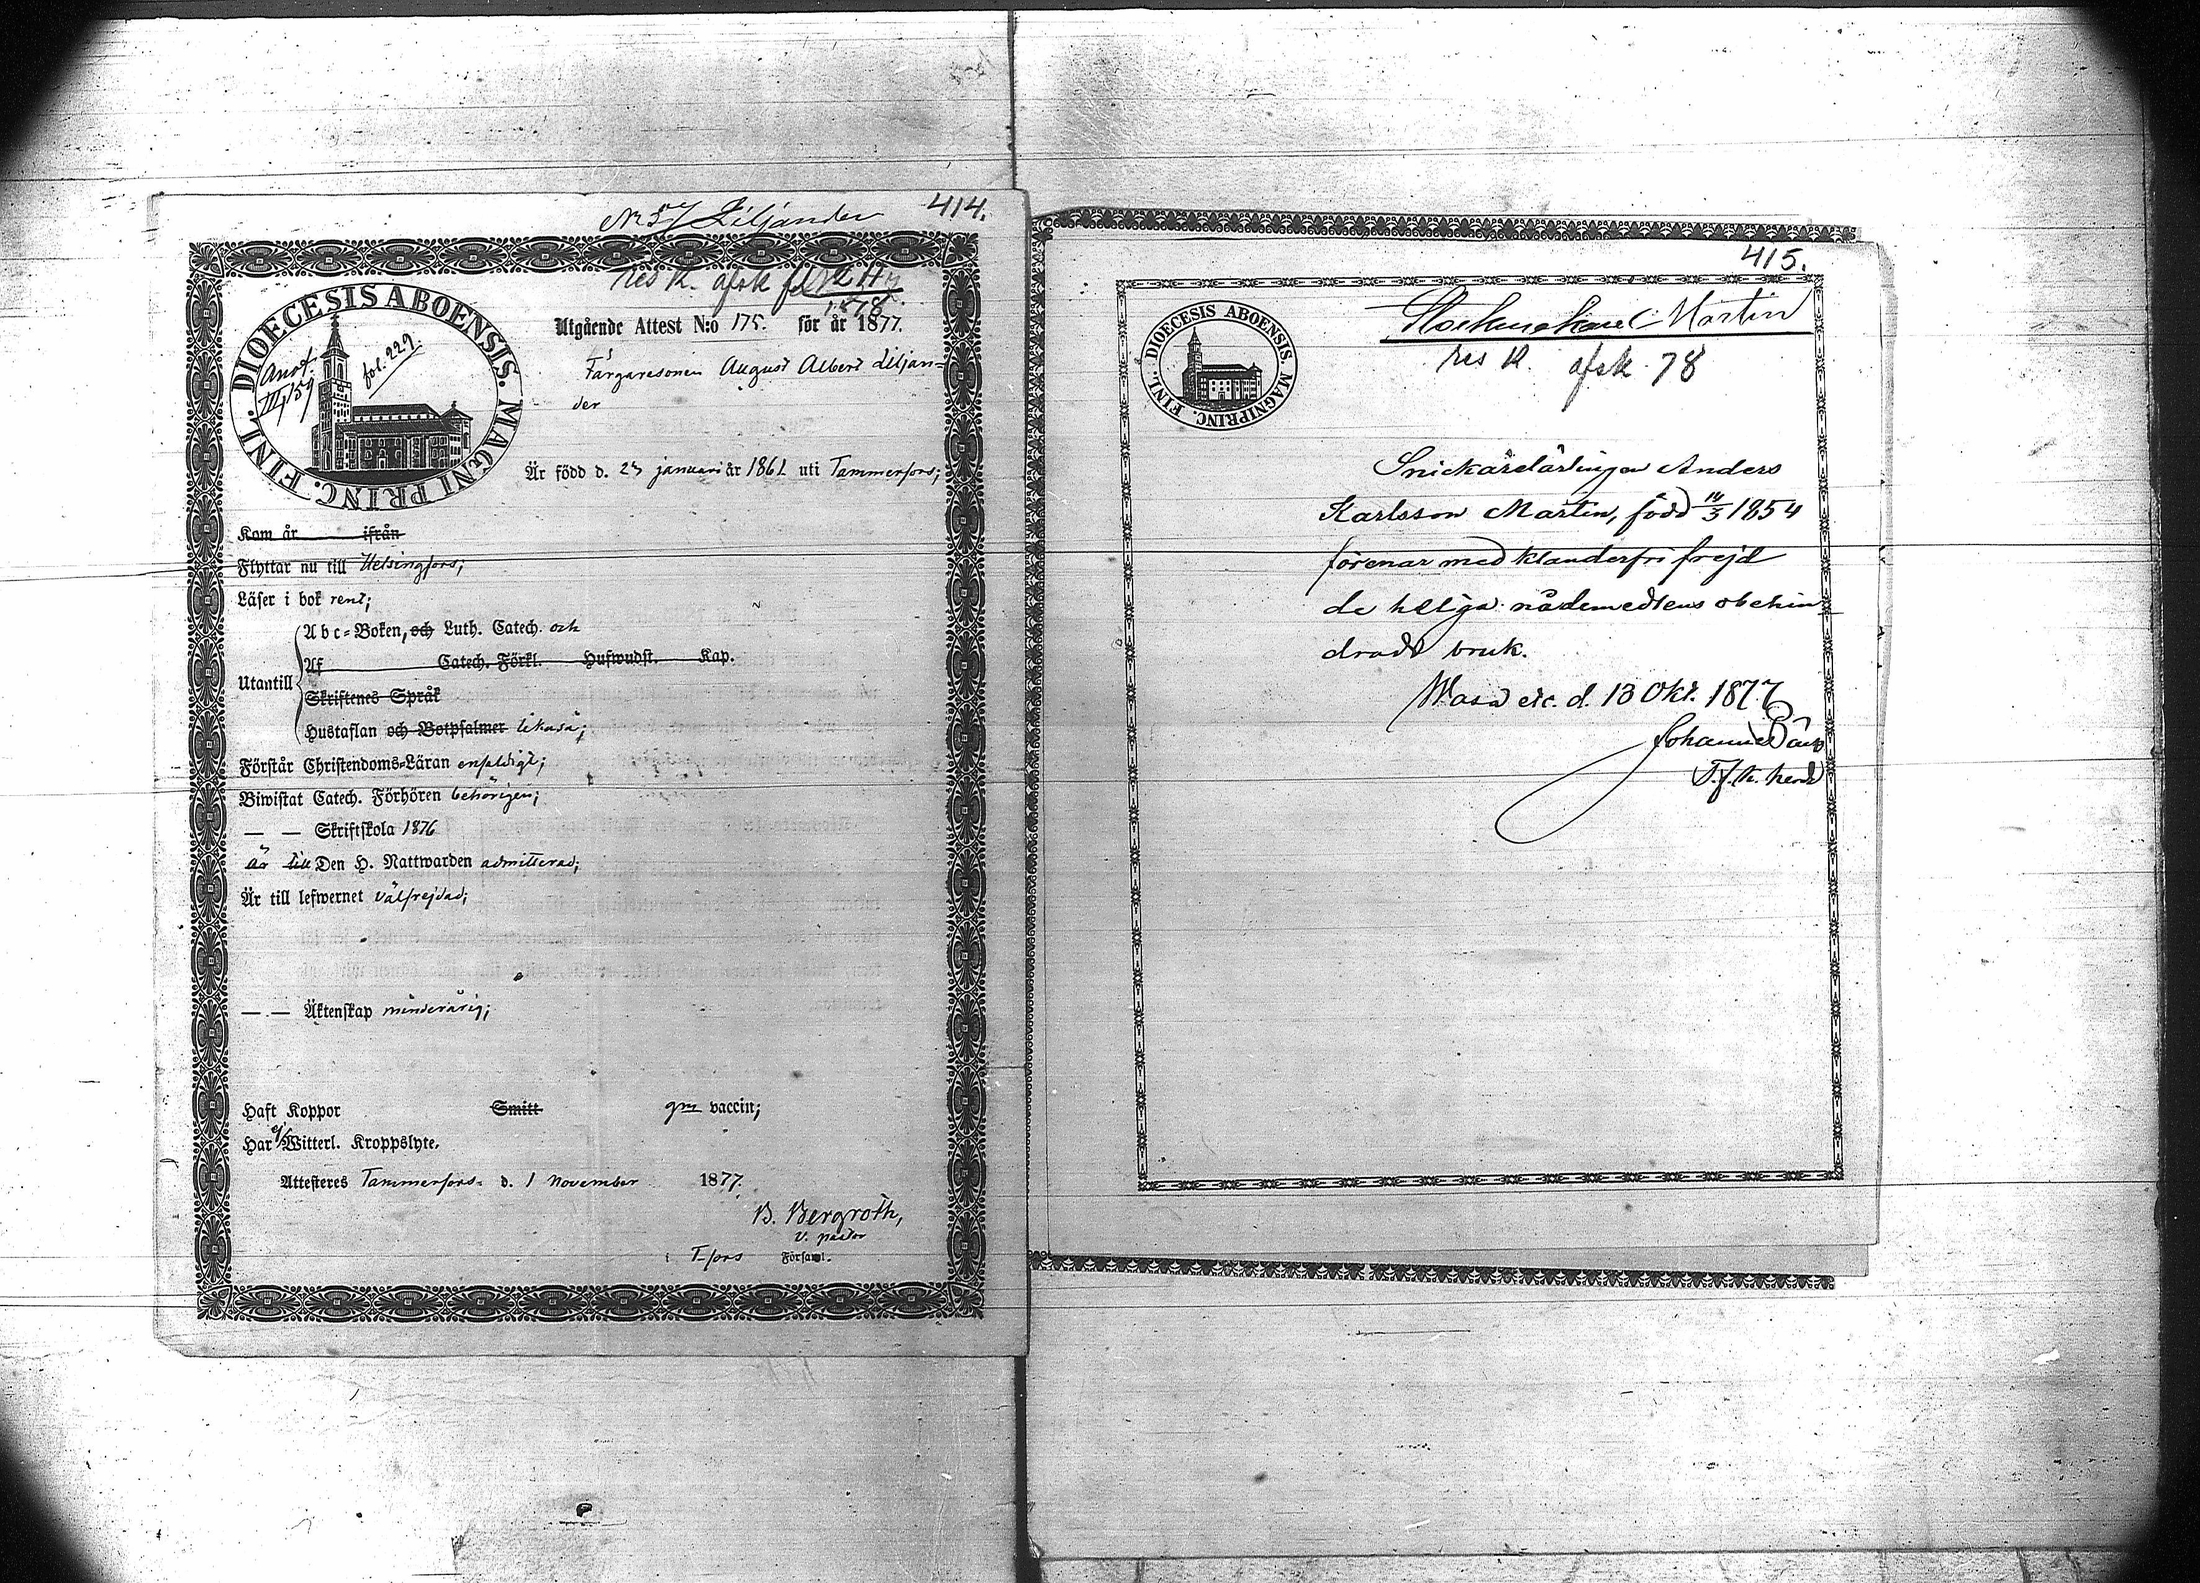 414.
Nr 57 Liljander
res k. afsk
1878
DIOECESIS ABOENSIS. MAGNI PRINC. FINL.
Anot. fol. 229
III, 159
Utgående Attest N:o 175. för år 1877.
Färgaresonen August Albert Liljan=
der
Är född d. 23 januari år 1861 uti Tammerfors;
Kom år ifrån
Flyttar nu till Helsingfors;
Läser i bok rent;
Abc=Boken, och Luth. Catech. och
Af Catech. Förkl. Hufwudst. Kap.
Utantill
Skriftenes Språk
Hustaflan och Botpsalmer likaså;
Förstår Christendoms=Läran enfaldigt;
Biwistat Catech. Förhören behörigen;
— — Skriftskola 1876
är till Den H. Nattwarden admitterad;
Är till lefwernet välfrejdad;
— — Äktenskap minderårig;
Haft Koppor Smitt gm vaccin;
Har ej Witterl. Kroppslyte.
Attesteres Tammerfors d. 1 november 1877.
B. Bergroth,
v. pastor
i T-fors Församl.
415.
Martin
res k. afsk. 78
DIOECESIS ABOENSIS. MAGNI PRINC. FINL.
Snickarelärlingen Anders
Karlsson Martin, född 14/3 1854
förenar med klanderfri frejd
de heliga nådemedlens obehin
drade bruk.
Wasa etc. d. 13 Okt. 1877
Johannes Bäck